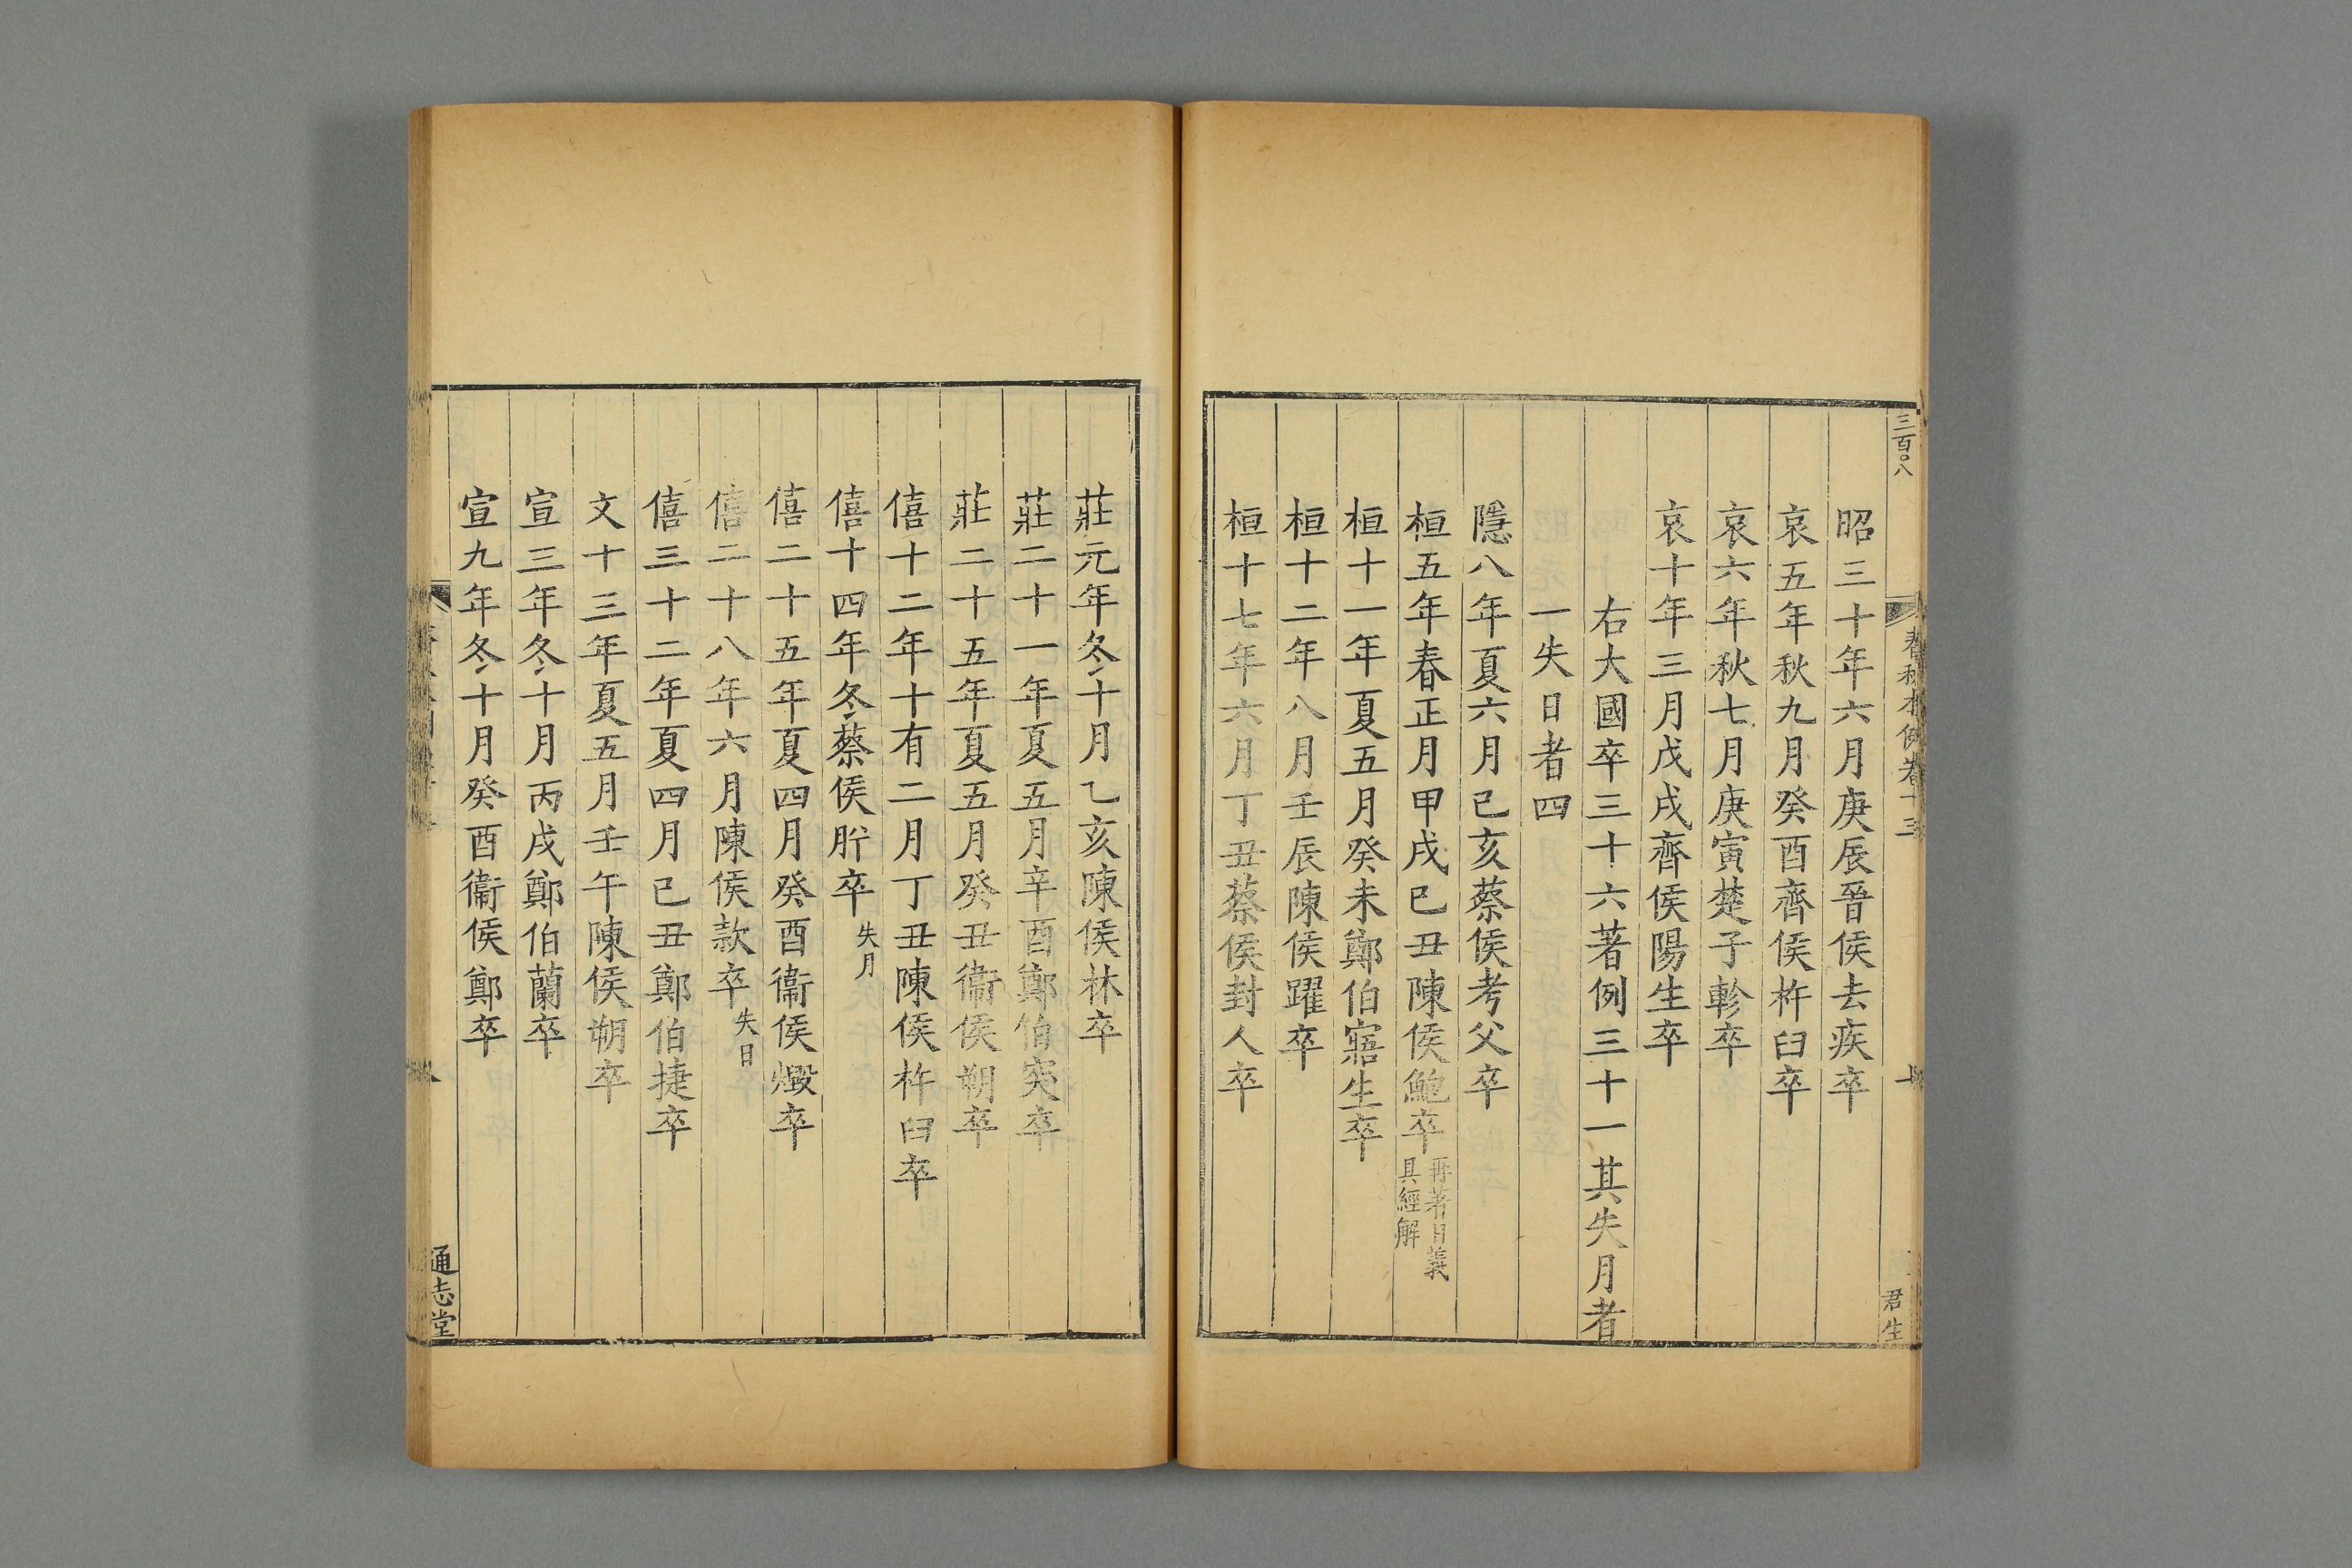 三百〇八
春秋本例卷十三
君生
昭三十年六月庚辰晉侯去疾卒
哀五年秋九月癸酉齊侯杵臼卒
哀六年秋七月庚寅楚子軫卒
哀十年三月戊戌齊侯陽生卒
右大國卒三十六著例三十一其失月者
一失日者四
隱八年夏六月己亥蔡侯考父卒
桓五年春正月甲戌己丑陳侯鮑卒再著日義
具經解
桓十一年夏五月癸未鄭伯寤生卒
桓十二年八月壬辰陳侯躍卒
桓十七年六月丁丑蔡侯封人卒
莊元年冬十月乙亥陳侯林卒
莊二十一年夏五月辛酉鄭伯突卒
莊二十五年夏五月癸丑衞侯朔卒
僖十二年十有二月丁丑陳侯杵臼卒
僖十四年冬蔡侯肸卒失月
僖二十五年夏四月癸酉衞侯燬卒
僖二十八年六月陳侯款卒失日
僖三十二年夏四月己丑鄭伯捷卒
文十三年夏五月壬午陳侯朔卒
宣三年冬十月丙戌鄭伯蘭卒
宣九年冬十月癸酉衞侯鄭卒
八
通志堂